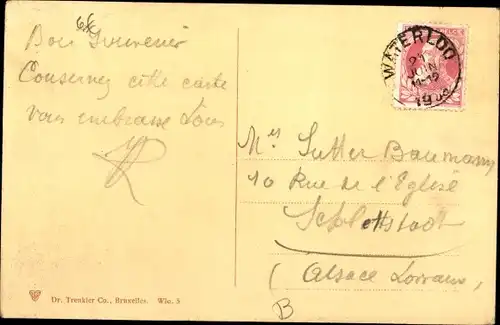 66
Bon Souvenir
Conservez cette carte
vous embrasse Tous
WATERLOO
JUIN
11-12
Mes Sutter Baumann
10 Rue de l'Eglise
Schlettstadt
(Alsace Lorraine)
B
Dr. Trenkler Co., Bruxelles. Wlo. 3